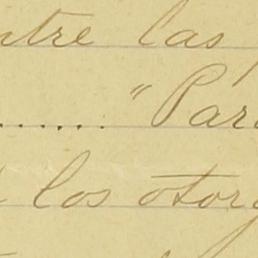 ntre las
....... "Para
los otorg